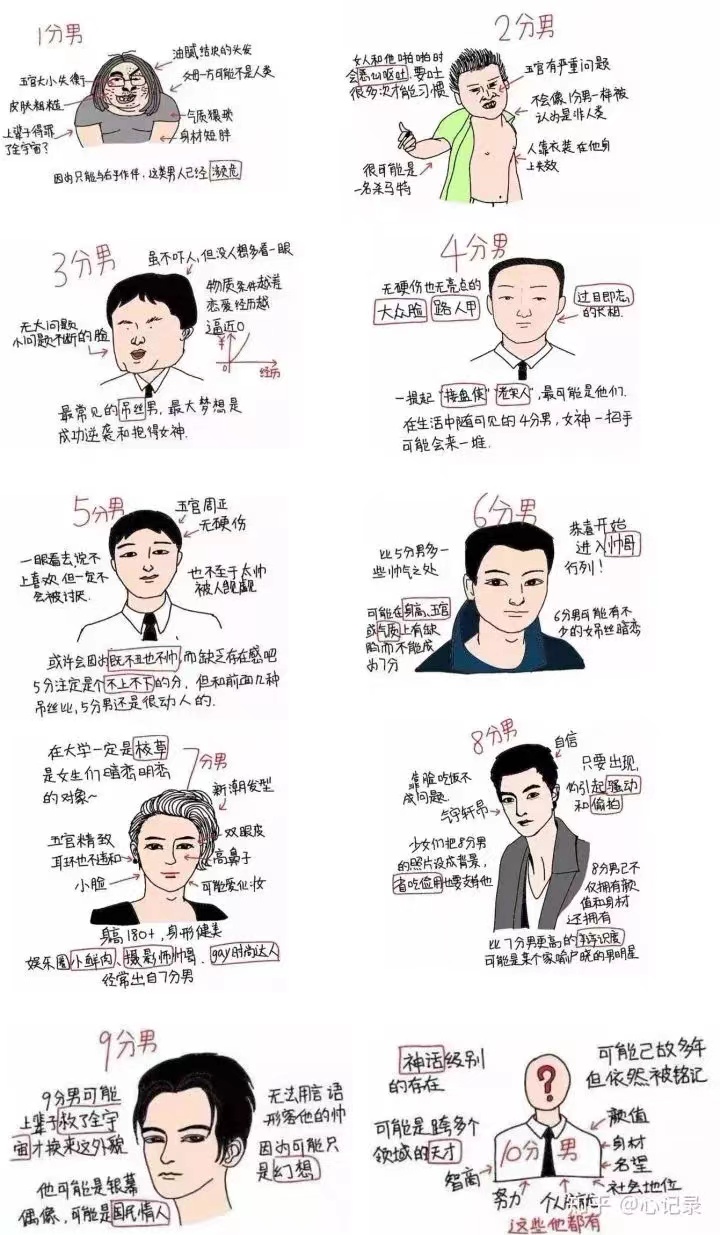 1分男
油腻结块的头发
五官大小失衡
父母一方可能不是人类
皮肤粗糙
气质猥琐
上辈子得罪
了全宇宙?
身材短胖
因为只能与右手作伴,这类男人已经濒危
2分男
女人和他啪啪时
会恶心呕吐.要吐
很多次才能习惯
五官有严重问题
不会像1分男一样被
认为是非人类
人靠衣装在他身
上失效
很可能是
一名杀马特
3分男
虽不吓人,但没人想多看一眼
物质条件越差
恋爱经历越
逼近0
无大问题
小问题不断的脸
¥
0
经历
最常见的吊丝男,最大梦想是
成功逆袭和抱得女神.
4分男
无硬伤也无亮点的
大众脸 路人甲
过目即忘
的长相.
一提起"接盘侠""老实人",最可能是他们.
在生活中随可见的4分男,女神一招手
可能会来一堆.
5分男
五官周正
无硬伤
一眼看去说不
上喜欢.但一定不
会被讨厌.
也不至于太帅
被人觊觎
或许会因为既不丑也不帅,而缺乏存在感吧
5分注定是个不上不下的分,但和前面几种
吊丝比,5分男还是很动人的.
6分男
比5分男多一
些帅气之处
恭喜开始
进入帅哥
行列!
可能在身高、五官
或气质上有缺
陷而不能成
为7分
6分男可能有不
少的女吊丝暗恋
7分男
在大学一定是校草
是女生们暗恋明恋
的对象~
新潮发型
双眼皮
五官精致
耳环也不违和
高鼻子
小脸
可能爱化妆
身高180+,身形健美
娱乐圈小鲜肉、摄影师帅哥、gay时尚达人
经常出自7分男
8分男
自信
靠脸吃饭不
成问题.
气宇轩昂
只要出现,
你引起骚动
和偷拍
少女们把8分男
的照片设成背景,
省吃俭用也要支持他
8分男已不
仅拥有颜
值和身材
还拥有
比7分男更高的辩识度
可能是某个家喻户晓的男明星
9分男
9分男可能
上辈子救了全宇
宙才换来这外貌
无法用言语
形容他的帅
因为可能只
是幻想
他可能是银幕
偶像,可能是国民情人
神话级别
的存在
可能已故多年
但依然被铭记
?
可能是跨多个
领域的天才
10分男
颜值
身材
名望
社会地位
智商
努力
这些他都有
知乎 @心记录